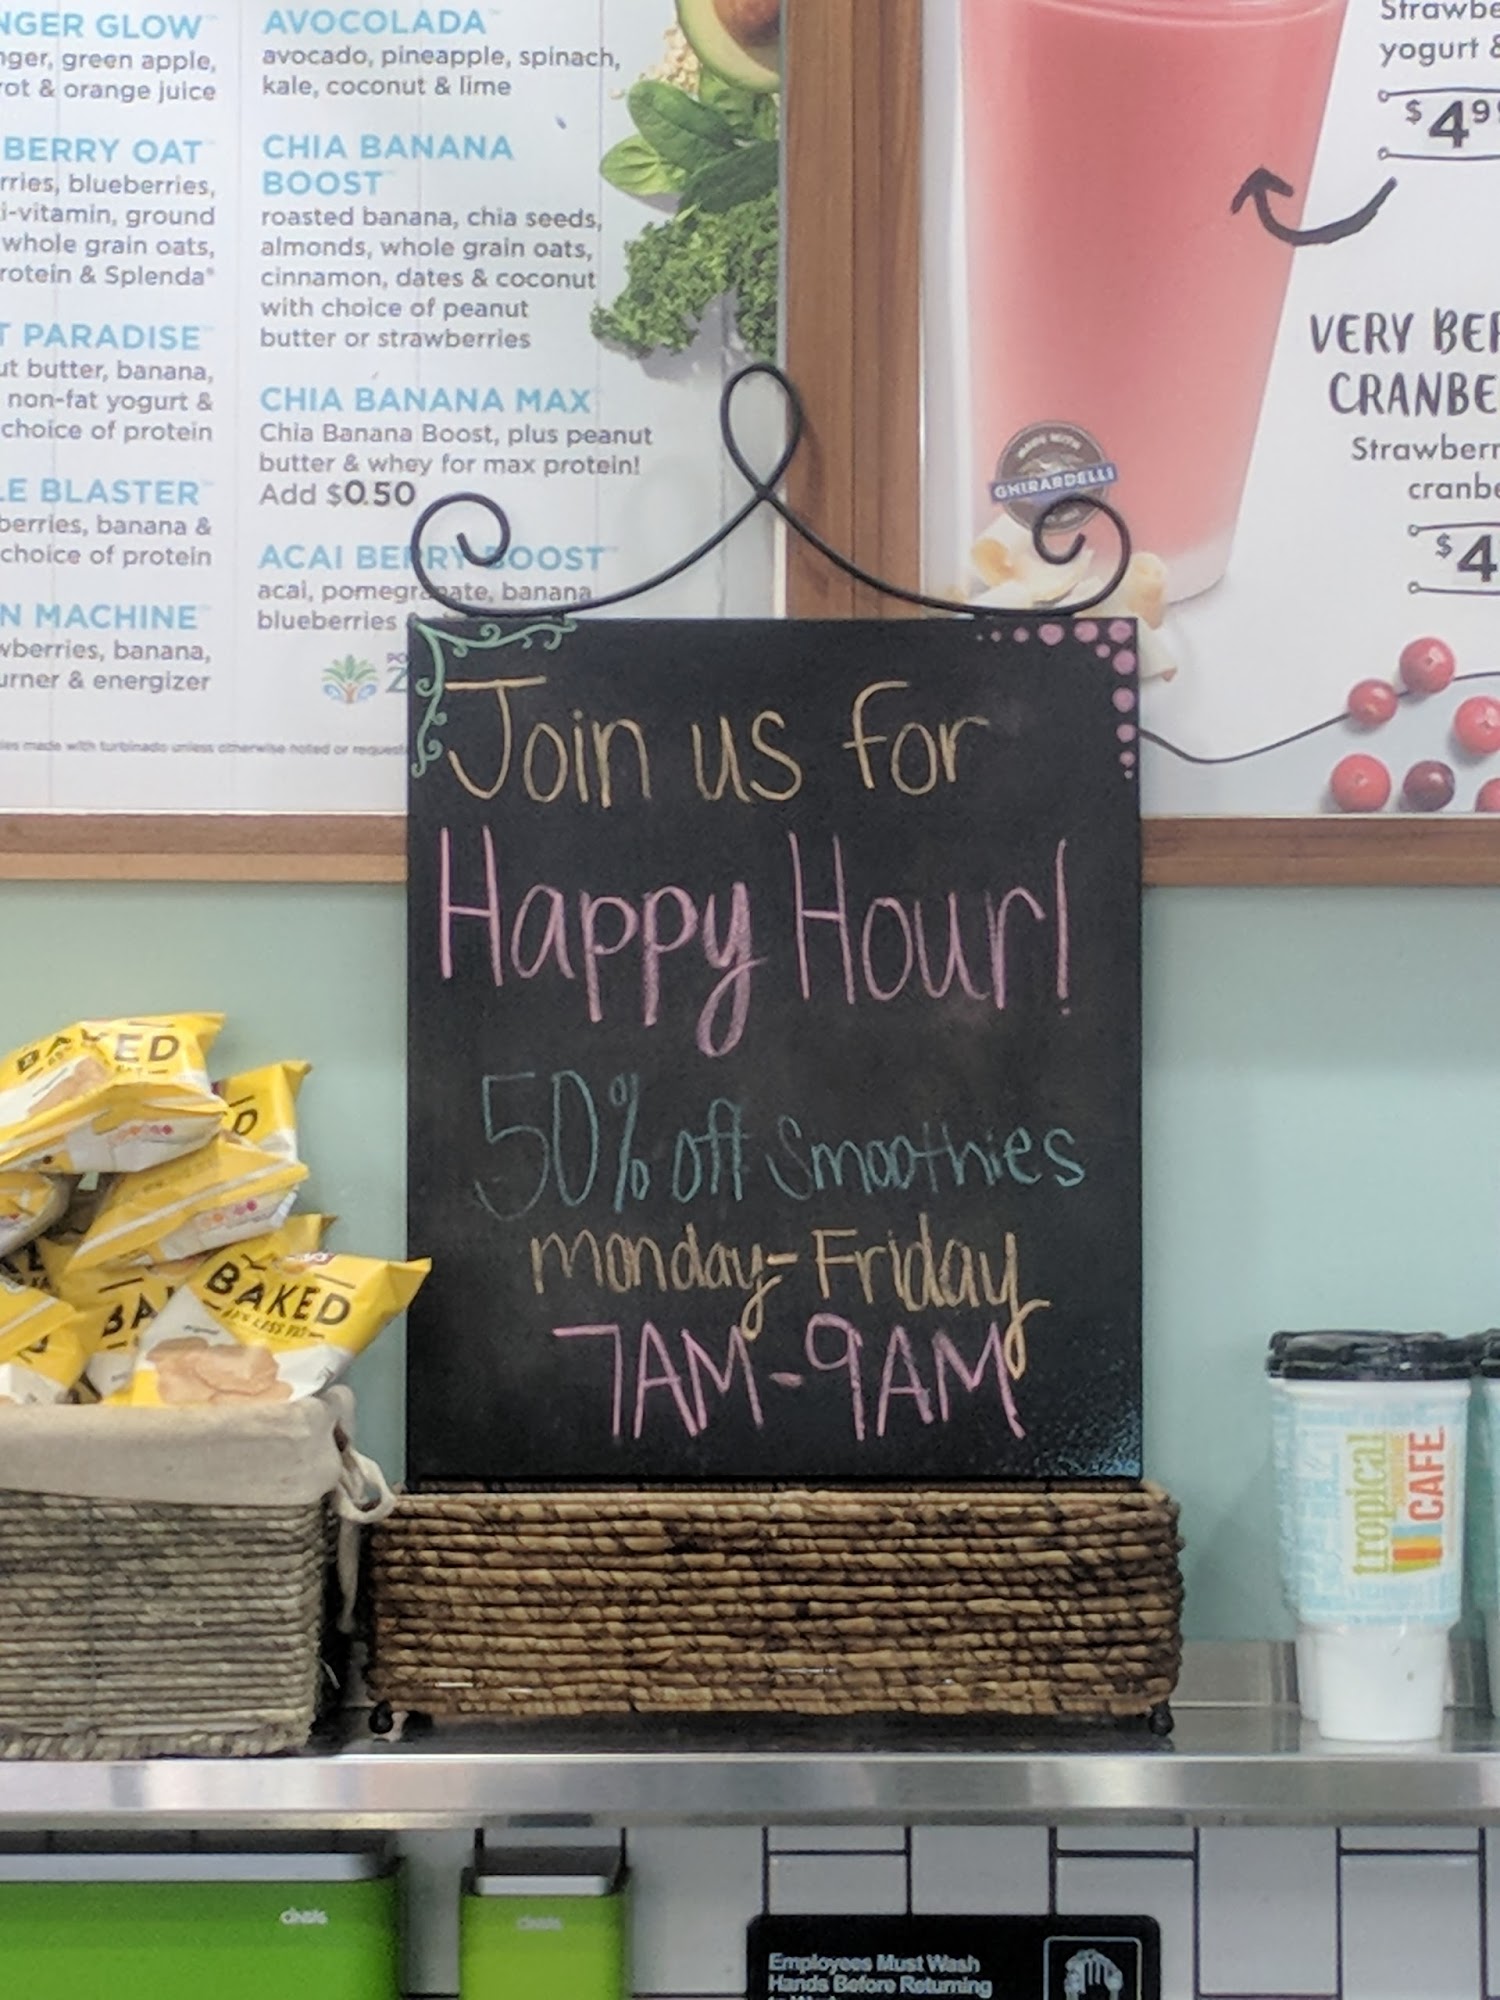 GLOW™
green apple,
& orange juice
BERRY OAT™
blueberries,
ground
whole grain oats,
& Splenda®
PARADISE™
butter, banana,
non-fat yogurt &
choice of protein
BLASTER™
banana &
choice of protein
MACHINE™
banana,
& energizer
made with turbinado unless otherwise noted or
AVOCOLADA™
avocado, pineapple, spinach,
kale, coconut & lime
CHIA BANANA
BOOST™
roasted banana, chia seeds,
almonds, whole grain oats,
cinnamon, dates & coconut
with choice of peanut
butter or strawberries
CHIA BANANA MAX
Chia Banana Boost, plus peanut
butter & whey for max protein!
Add $0.50
ACAI BERRY BOOST™
acai, pomegranate, banana,
blueberries
yogurt &
VERY
MADE WITH
GHIRARDELLI
Join us for
Happy Hour!
50% off smoothies
monday-Friday
7AM-9AM
BAKED
BAKED
tropical
SMOOTHIE
CAFE
Employees Must Wash
Hands Before Returning